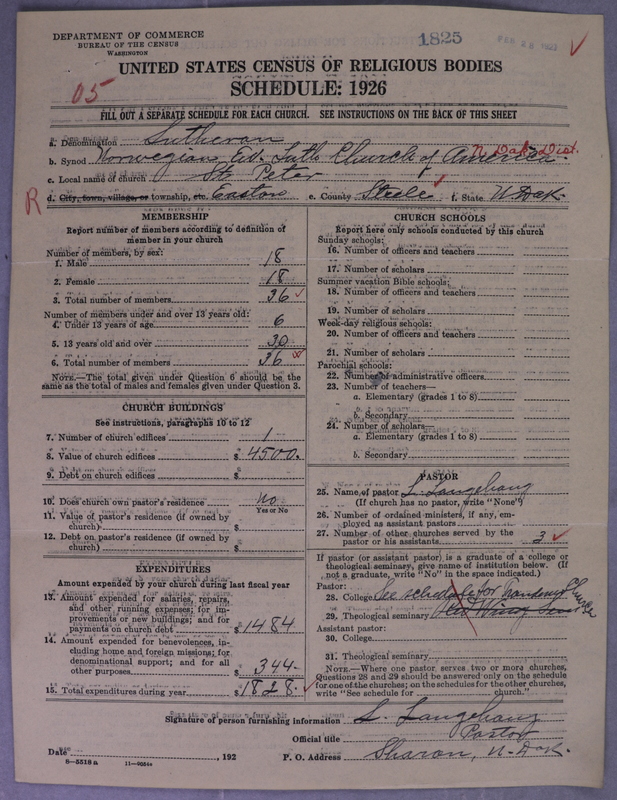 DEPARTMENT OF COMMERCE
BUREAU OF THE CENSUS
WASHINGTON
1825
FEB 28 1927
UNITED STATES CENSUS OF RELIGIOUS BODIES
05
SCHEDULE: 1926
FILL OUT A SEPARATE SCHEDULE FOR EACH CHURCH. SEE INSTRUCTIONS ON THE BACK OF THIS SHEET
a. Denomination Lutheran
b. Synod Norwegian Ev. Luth Church of America. N. Dak. Dist.
c. Local name of church St. Peter
R
d. City, town, village, or township, etc. Easton e. County Steele f. State N Dak.
MEMBERSHIP
Report number of members according to definition of
member in your church
Number of members, by sex:
1. Male 18
2. Female 18
3. Total number of members 36
Number of members under and over 13 years old:
4. Under 13 years of age 6
5. 13 years old and over 30
6. Total number of members 36
NOTE.—The total given under Question 6 should be the
same as the total of males and females given under Question 3.
CHURCH BUILDINGS
See instructions, paragraphs 10 to 12
7. Number of church edifices 1
8. Value of church edifices $ 4500.
9. Debt on church edifices $
10. Does church own pastor's residence No
Yes or No
11. Value of pastor's residence (if owned by
church) $
12. Debt on pastor's residence (if owned by
church) $
EXPENDITURES
Amount expended by your church during last fiscal year
13. Amount expended for salaries, repairs,
and other running expenses; for im-
provements or new buildings; and for
payments on church debt $ 1484
14. Amount expended for benevolences, in-
cluding home and foreign missions; for
denominational support; and for all
other purposes $ 344-
15. Total expenditures during year $ 1828
CHURCH SCHOOLS
Report here only schools conducted by this church
Sunday schools:
16. Number of officers and teachers
17. Number of scholars
Summer vacation Bible schools:
18. Number of officers and teachers
19. Number of scholars
Week-day religious schools:
20. Number of officers and teachers
21. Number of scholars
Parochial schools:
22. Number of administrative officers
23. Number of teachers—
a. Elementary (grades 1 to 8)
b. Secondary
24. Number of scholars—
a. Elementary (grades 1 to 8)
b. Secondary
PASTOR
25. Name of pastor L. Langehaug
(If church has no pastor, write "None")
26. Number of ordained ministers, if any, em-
ployed as assistant pastors
27. Number of other churches served by the
pastor or his assistants 3
If pastor (or assistant pastor) is a graduate of a college or
theological seminary, give name of institution below. (If
not a graduate, write "No" in the space indicated.)
Pastor:
28. College See schedule for Church
29. Theological seminary Red Wing Sem
Assistant pastor:
30. College
31. Theological seminary
NOTE.—Where one pastor serves two or more churches,
Questions 28 and 29 should be answered only on the schedule
for one of the churches; on the schedules for the other churches,
write "See schedule for church."
Signature of person furnishing information L. Langehaug
Official title Pastor
Date , 192 P. O. Address Sharon, N-Dak.
8-5518 a 11-9054